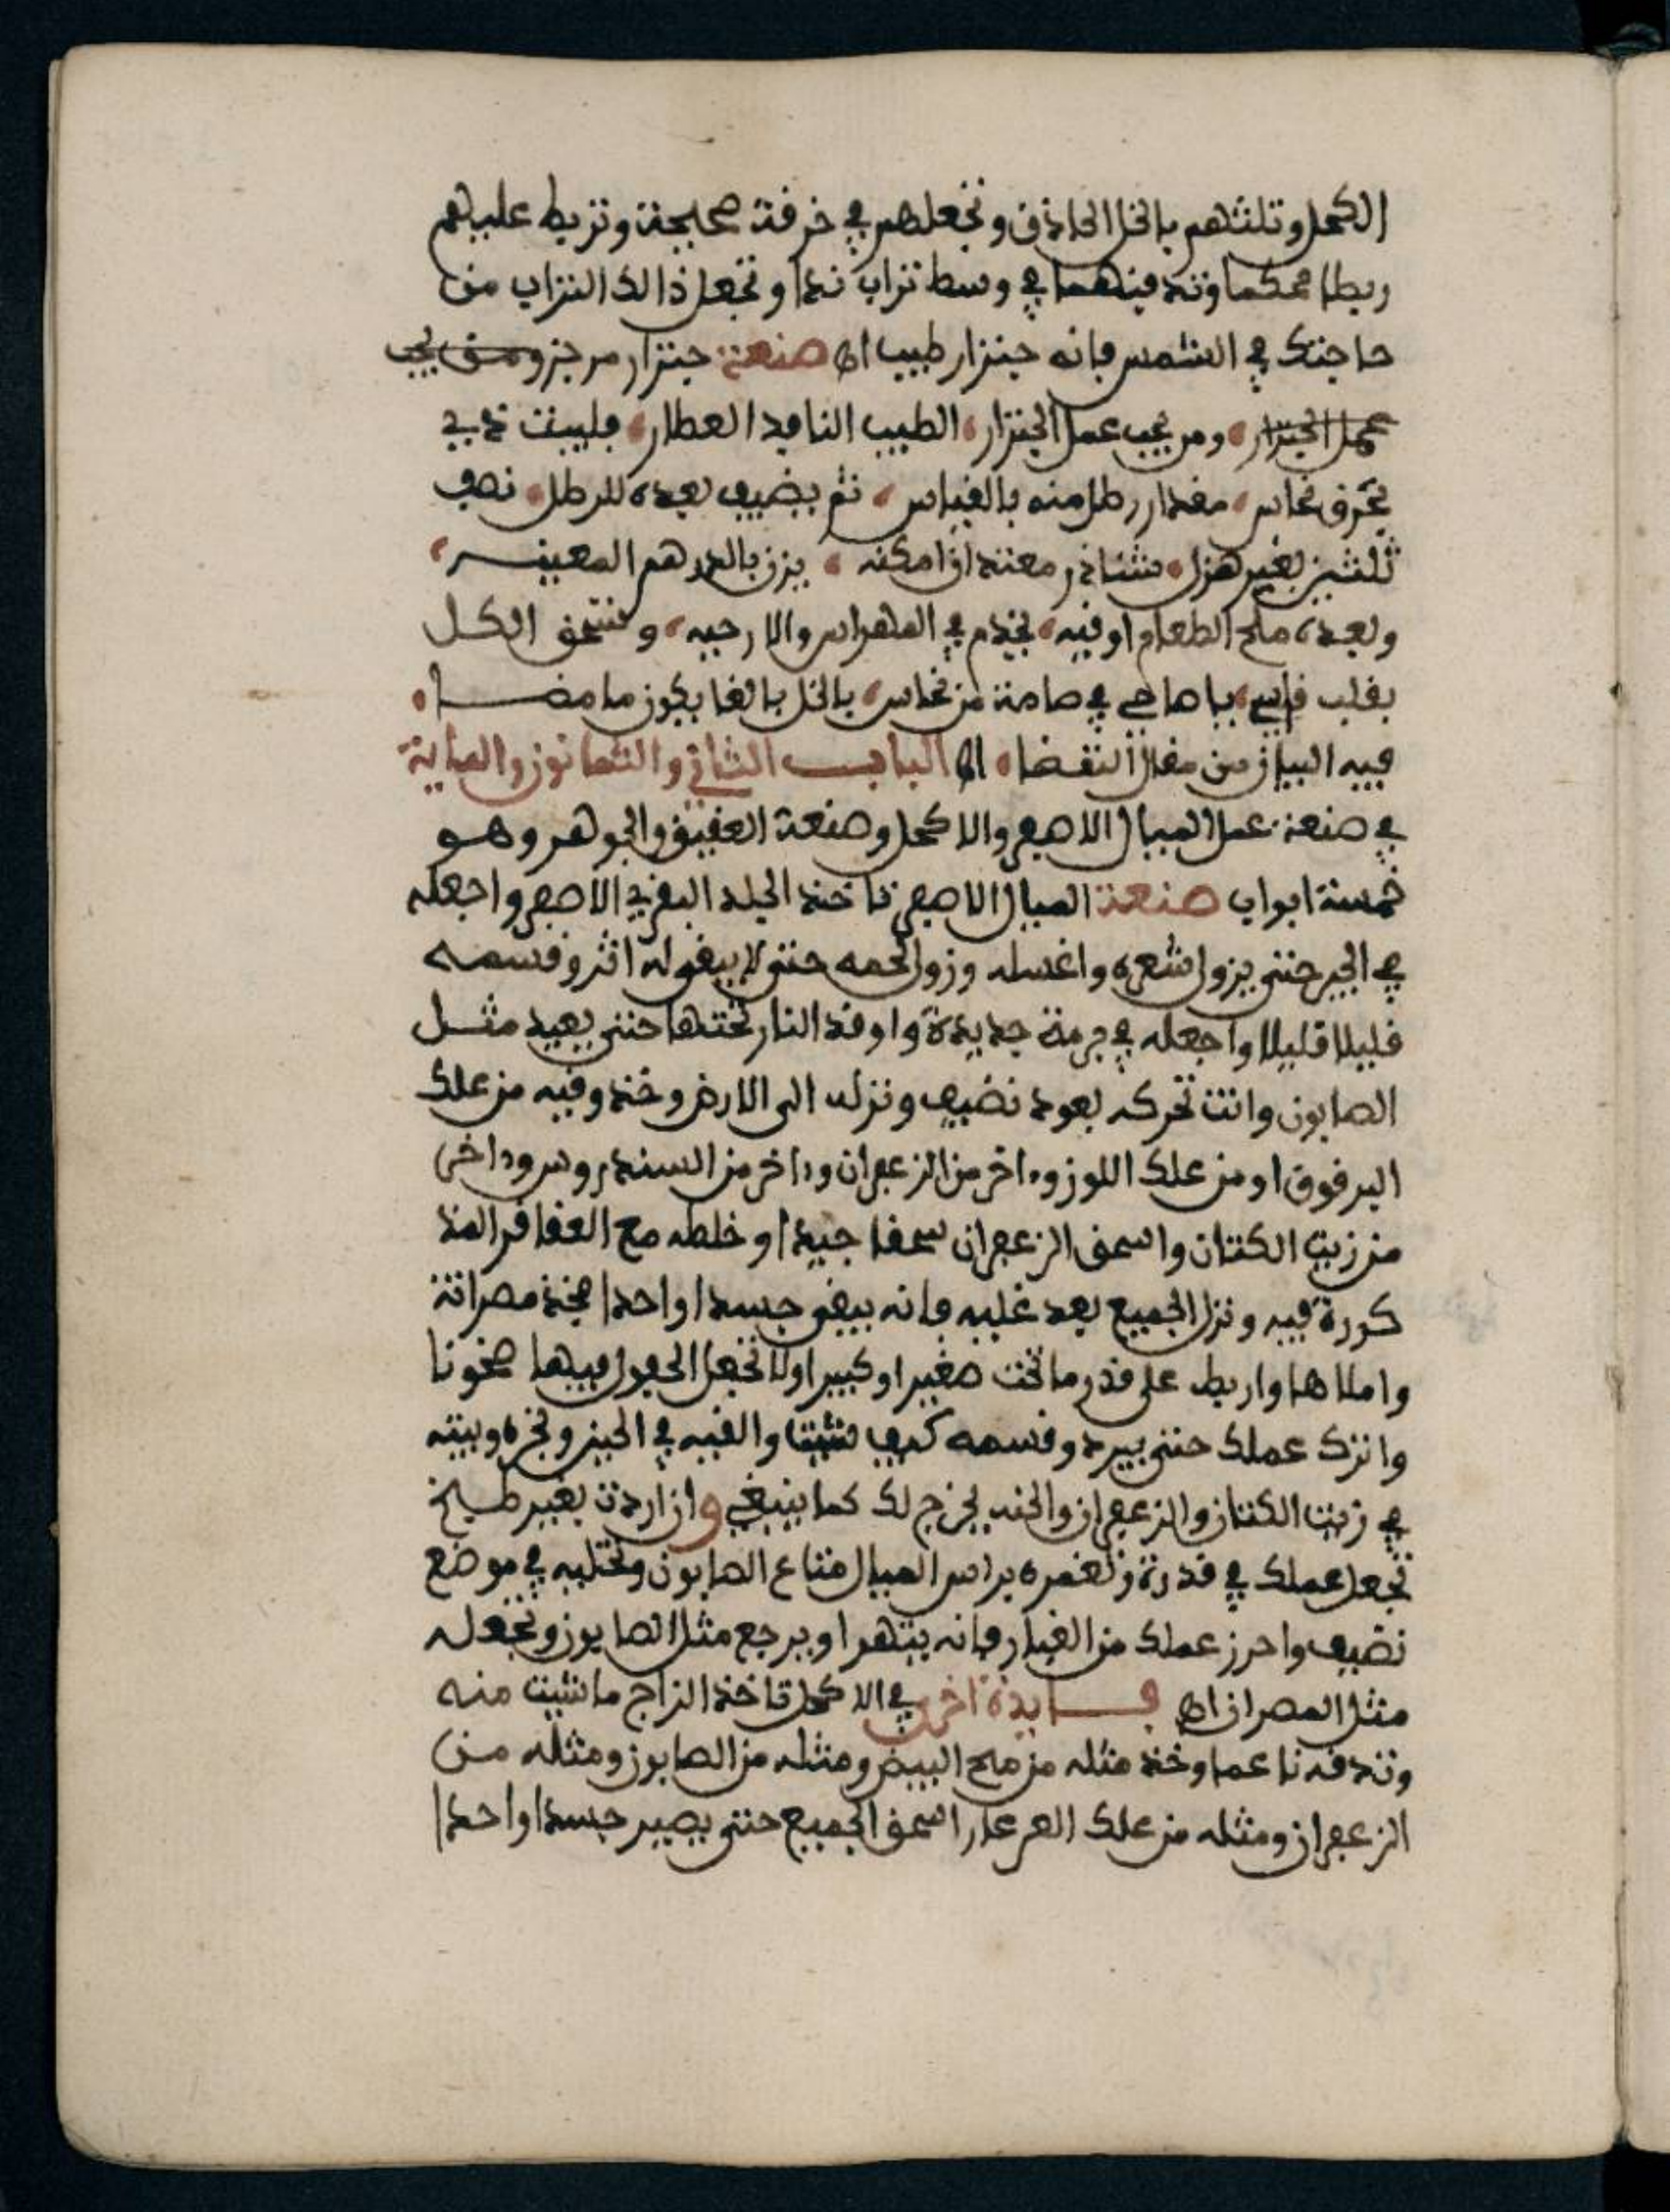 الكحل وتلثهم بالخل الحاذق وتجعلهم في خرقة صحيحة وتربط عليهم
ربطا محكما وتدفنهما في وسط تراب ندا وتجعل ذالك التراب من
حاجتك في الشمس فانه جنزار طيب اه صنعة جنزار مرجز ومن يحب
عمل الجنزار ومن يحب عمل الجنزار الطيب النافد العطار فليت
يحرق نحاس مقدار رطل منه بالقياس ثم يضيف بعده للرطل نصف
ثلثين بغير هزل نشاذر معتدا ان امكنه يزن بالدرهم المعين
وبعده ملح الطعام اوقيه يخدم في المهراس والارحيه وتسحق الكل
بقلب قاسي يا صاحي في طاسة من نحاس بالخل بالغا يكون ما مضا
فيه البيان من مقال انتقضا اه الباب الثاني والثمانون والماية
في صنعة عمل الميبال الاصفر والاكحل وصنعة العقيق والجوهر وهو
خمسة ابواب صنعة الميبال الاصفر تاخذ الجلد البقري الاصفر واجعله
في الجير حتى يزول شعره واغسله وزول لحمه حتى لا يبقى له اثر وقسمه
قليلا قليلا واجعله في برمة جديدة واوقد النار تحتها حتى يعيد مثل
الصابون وانت تحركه بعود نضيف ونزله الى الارض وخذ وقيه من علك
البرقوق او من علك اللوز واخر من الزعفران واخر من السندروس واخرى
من زيت الكتان واسحق الزعفران سحقا جيدا وخلطه مع العقاقر المذ
كورة فيه ونزل الجميع بعد غليه فانه يبقى جسدا واحدا فخذ مصرانة
واملاها واربط على قدر ما تحت صغير او كبير اولا تجعل الحقول فيها صخونا
واترك عملك حتى يبرد وقسمه كيف شيت والقيه في الجير وتخره وبيته
في زيت الكتان والزعفران والخد يخرج لك كما ينبغي وان اردت بغير طبخ
تجعل عملك في قدرة وتغمره براس الميبال متاع الصابون وتخليه في موضع
نضيف واحرز عملك من الغبار فانه يتهرا ويرجع مثل الصابون وتجعله
مثل المصران اه فايدة اخرى في الاكحل تاخذ الزاج ما شيت منه
وتدقه ناعما وخذ مثله من ملح البيض ومثله من الصابون ومثله من
الزعفران ومثله من علك العرعار اسحق الجميع حتى يصير جسدا واحدا